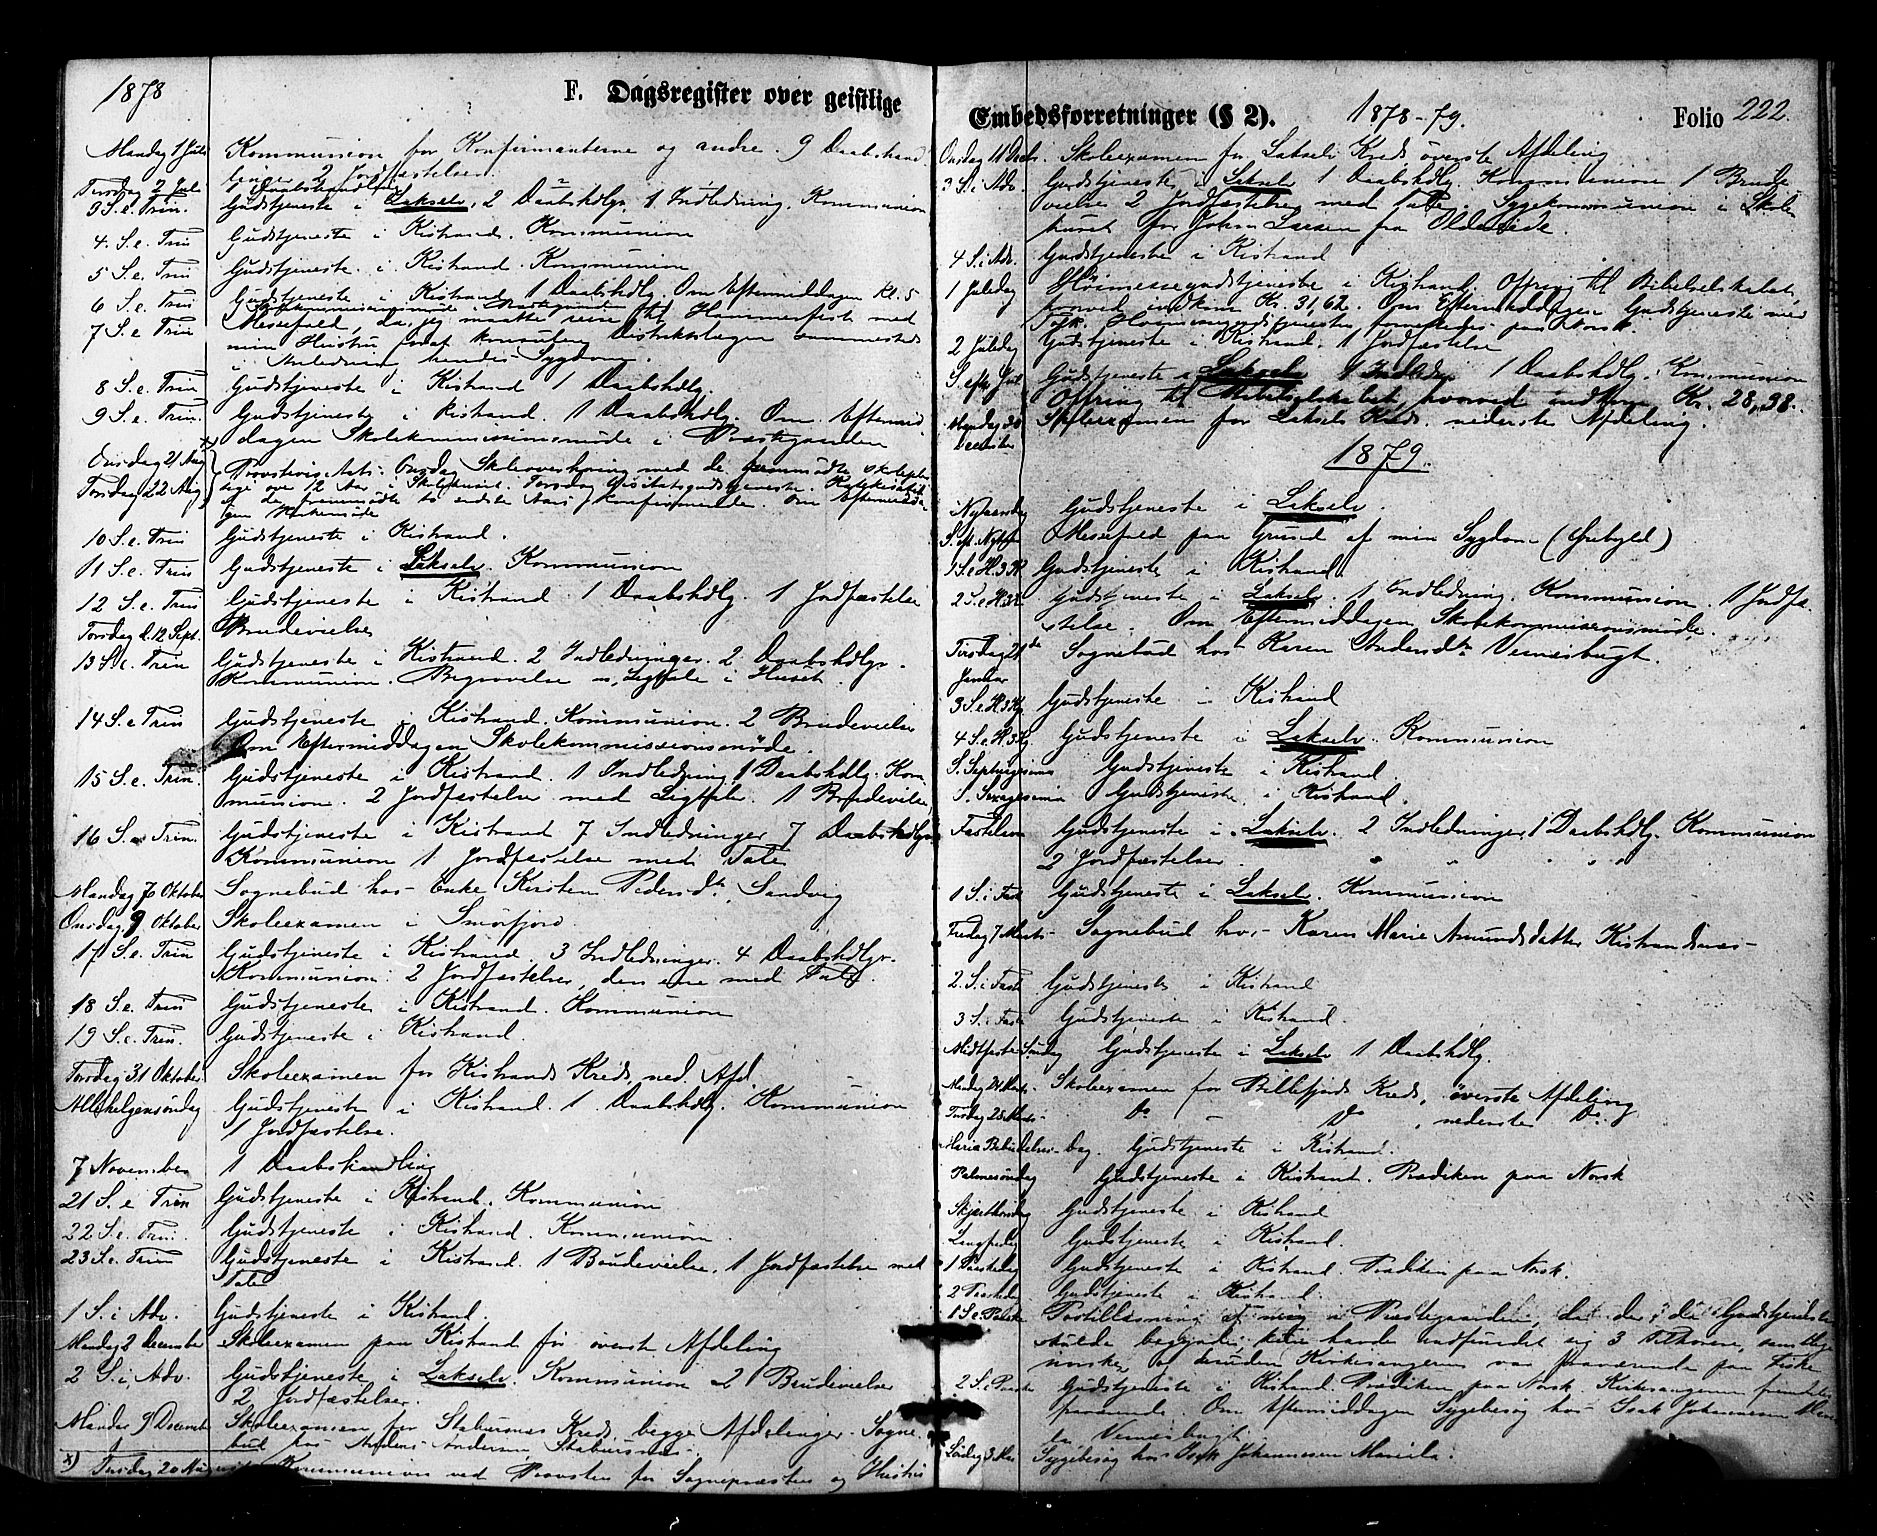 1878
F. Dagsregister over geistlige
Mandag 1 Juli Kommunion for Konfirmanterne og andre. 9 Daabshand
linger 2 Jordfæstelser.
Tirsdag 2 Juli 1 Daabshandling
3 S. e. Trin. Gudstjeneste i Lakselv, 2 Daabshdlgr. 1 Indledning. Kommunion
4. S. e. Trin Gudstjeneste i Kistrand. Kommunion
5 S. e. Trin Gudstjeneste i Kistrand. Kommunion
6 S. e. Trin Gudstjeneste i Kistrand 1 Daabshdlg. Om Eftermiddagen Kl. 5
Skolekommissionsmøde i Præstegaarden
7 S. e. Trin Messefald, da jeg maatte reise til Hammerfest med
min Hustru forat konsulere Distriktslægen sammesteds
i Anledning hendes Sygdom.
8 S. e. Trin Gudstjeneste i Kistrand 1 Daabshdlg.
9 S. e. Trin. Gudstjeneste i Kistrand. 1 Daabshdlg. Om Eftermid-
dagen Skolekommissionsmøde i Præstegaarden
Onsdag 21 Aug x) Provstevisitats: Onsdag Skoleoverhøring med de fremmødte skoleplig
Torsdag 22 Aug tige over 12 Aar i Skolehuset. Torsdag Visitatsgudstjeneste. Katekisation
af den fremmødte to sidste Aars Konfirmander. Om Eftermidda
gen Kirkemøde
10 S. e. Trin Gudstjeneste i Kistrand.
11 S. e. Trin Gudstjeneste i Lakselv. Kommunion
12 S. e. Trin Gudstjeneste i Kistrand. 1 Daabshdlg. 1 Jordfæstelse
Torsdag d. 12 Sept. Brudevielse
13 S. e. Trin Gudstjeneste i Kistrand. 2 Indledninger. 2 Daabshdlgr.
Kommunion. Begravelse m. Ligtale i Huset.
14 S. e Trin Gudstjeneste i Kistrand. Kommunion. 2 Brudevielser
Om Eftermiddagen Skolekommissionsmøde.
15 S. e. Trin. Gudstjeneste i Kistrand. 1 Indledning 1 Daabshdlg. Kom
munion. 2 Jordfæstelser med Ligtale. 1 Brudevielse
16 S. e Trin. Gudstjeneste i Kistrand 7 Indledninger 7 Daabshdlgr
Kommunion 1 Jordfæstelse med Tale
Mandag 7 Oktober Sognebud hos Enke Kirsten Pedersdt. Sandvig
Onsdag 9 Oktober Skoleexamen i Smørfjord
17 S. e. Trin Gudstjeneste i Kistrand. 3 Indledninger. 4 Daabshdlgr.
Kommunion. 2 Jordfæstelser, den ene med Tale.
18 S. e. Trin Gudstjeneste i Kistrand. Kommunion
19 S. e. Trin. Gudstjeneste i Kistrand.
Torsdag 31 Oktober Skoleexamen for Kistrands Kreds, ned. Afd.
Allehelgensøndag Gudstjeneste i Kistrand. 1 Daabshdlg. Kommunion
1 Jordfæstelse.
7 November 1 Daabshandling
21 S. e Trin Gudstjeneste i Kistrand. Kommunion
22 S. e. Trin. Gudstjeneste i Kistrand. Kommunion.
23 S. e. Trin Gudstjeneste i Kistrand. 1 Brudevielse. 1 Jordfæstelse med
Tale
1 S. i Adv. Gudstjeneste i Kistrand.
Mandag 2 December Skoleexamen paa Kistrand for øverste Afdeling
2 S. i Adv. Gudstjeneste i Lakselv. Kommunion 2 Brudevielser
2 Jordfæstelser.
Mandag 9 Decembr Skoleexamen for Staburnæs Kreds, begge Afdelinger. Sogne
bud hos Staburnæs.
x) Tirsdag 20 August Kommunion ved Provsten for Sognepræsten og Hustru
Embedsforretninger (§ 2). 1878-79. Folio 222.
Onsdag 11 Decbr. Skoleexamen for Lakselv Kreds øverste Afdeling
3 S. i Adv. Gudstjeneste i Lakselv 1 Daabshdlg. Kommunion. 1 Brude
vielse 2 Jordfæstelser med Tale. Sygekommunion i Skole
huset for Johan Larsen fra Olderede.
4 S. i Adv. Gudstjeneste i Kistrand
1 Juledag Høimessegudstjeneste i Kistrand. Ofring til Bibelselskabet,
hvorved indkom Kr. 31,62. Om Eftermiddagen Gudstjeneste med
Høimessegudstjenesten paa Norsk.
2 Juledag Gudstjeneste i Kistrand. 1 Jordfæstelse
S. eft. Jul Gudstjeneste i Lakselv 1 Indledn. 1 Daabshdlg. Kommunion
Ofring til Bibelselskabet, hvorved indkom Kr. 28,38.
Mandag 30 December Skoleexamen for Lakselv Kreds nederste Afdeling.
1879.
Nytaarsdag Gudstjeneste i Lakselv.
S. eft. Nytaar Messefald paa Grund af min Sygdom (Ørebyld)
1 S. e H. 3 K Gudstjeneste i Kistrand.
2 S. e H. 3 K Gudstjeneste i Lakselv. 1 Indledning. Kommunion. 1 Jordfæ-
stelse. Om Eftermiddagen Skolekommissionsmøde.
Tirsdag 21de Januar Sognebud hos Karen Andersdt. Vernesbugt.
3 S. e H. 3 Kg Gudstjeneste i Kistrand
4 S. e H. 3 Kg Gudstjeneste i Lakselv. Kommunion
S. Septuagesima Gudstjeneste i Kistrand.
S. Sexagesima Gudstjeneste i Kistrand.
Fastelavn Gudstjeneste i Lakselv. 2 Indledninger 1 Daabshdlg. Kommunion
2 Jordfæstelser.
1 S. i Fast Gudstjeneste i Lakselv. Kommunion
Fredag 7 Marts Sognebud hos Karen Marie Amundsdatter Kistrandsnæs
2. S. i Faste Gudstjeneste i Kistrand
3 S. i Faste Gudstjeneste i Kistrand.
Midtfaste Søndag Gudstjeneste i Lakselv 1 Daabshdlg.
Mandag 24 Marts. Skoleexamen for Billefjords Kreds, øverste Afdeling
Tirsdag 25 Marts Do - Do, nederste Do.
Mariæ Bebudelses-dag. Gudstjeneste i Kistrand.
Palmesøndag Gudstjeneste i Kistrand. Prædiken paa Norsk
Skjærthorsdag Gudstjeneste i Kistrand
Langfredag Gudstjeneste i Kistrand.
1 Paaskedag Gudstjeneste i Kistrand. Prædiken paa Norsk.
2 Paaskedag Gudstjeneste i Kistrand.
1 S. e. Paaske Postillæsning af mig i Præstegaarden, da der, i da Gudstjenesten
skulde begynde, kun havde indfundet sig 3 Tilhørere, samtlige
norske, og desuden Kirkesangeren var fraværende paa Fiske
2 S. e Paaske Gudstjeneste i Kistrand. Prædiken paa Norsk. Kirkesangeren fremdeles
fraværende. Om Eftermiddagen Sygebesøg hos Isak Johannesen
Vernesbugt.
Lørdag 3 Mai Sygebesøg hos Isak Johannesen